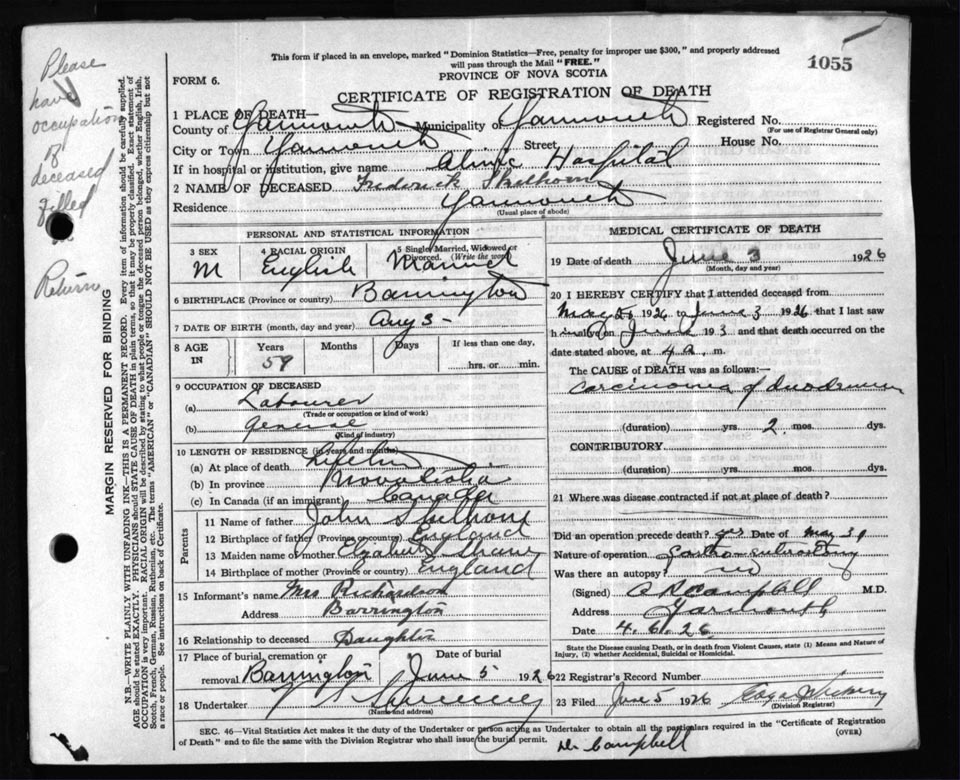 This form if placed in an envelope, marked "Dominion Statistics—Free, penalty for improper use $300," and properly addressed
will pass through the Mail "FREE."
1055
FORM 6.
PROVINCE OF NOVA SCOTIA
CERTIFICATE OF REGISTRATION OF DEATH
Please
have
occupation
of
deceased
filled
in
Return
MARGIN RESERVED FOR BINDING
N.B.—WRITE PLAINLY WITH UNFADING INK—THIS IS A PERMANENT RECORD. Every item of information should be carefully supplied.
AGE should be stated EXACTLY. PHYSICIANS should STATE CAUSE OF DEATH in plain terms, so that it may be properly classified. Exact statement of
OCCUPATION is very important. RACIAL ORIGIN will be described by stating to what people or tongue the deceased person belonged, whether English, Irish,
Scotch, French, German, Russian, Ruthenian, etc. The terms "AMERICAN" or "CANADIAN" SHOULD NOT BE USED as they express citizenship but not
a race or people. See instructions on back of Certificate.
1 PLACE OF DEATH—
County of Yarmouth Municipality of Yarmouth Registered No.
(For use of Registrar General only)
City or Town Yarmouth Street, House No.
If in hospital or institution, give name Clinic Hospital
2 NAME OF DECEASED Frederick
Residence Yarmouth
(Usual place of abode)
PERSONAL AND STATISTICAL INFORMATION
3 SEX M
4 RACIAL ORIGIN English
5 Single, Married, Widowed or Divorced. (Write the word) Married
6 BIRTHPLACE (Province or country) Barrington
7 DATE OF BIRTH (month, day and year) Aug 3 -
8 AGE IN Years 59 Months Days If less than one day, hrs. or min.
9 OCCUPATION OF DECEASED
(a) Labourer
(Trade or occupation or kind of work)
(b) General
(Kind of industry)
10 LENGTH OF RESIDENCE (in years and months)
(a) At place of death
(b) In province Nova Scotia
(c) In Canada (if an immigrant) Canada
Parents
11 Name of father John
12 Birthplace of father (Province or country) England
13 Maiden name of mother Elizabeth
14 Birthplace of mother (Province or country) England
15 Informant's name Mrs Richardson
Address Barrington
16 Relationship to deceased Daughter
17 Place of burial, cremation or removal Barrington Date of burial June 5 1926
18 Undertaker Sweeney
(Name and address)
MEDICAL CERTIFICATE OF DEATH
19 Date of death June 3 1926
(Month, day and year)
20 I HEREBY CERTIFY that I attended deceased from
May 1926 to June 3 1926, that I last saw
h alive June 193 and that death occurred on
date stated above, at 4 a. m.
The CAUSE of DEATH was as follows:—
Carcinoma of duodenum
(duration) yrs. 2 mos. dys.
CONTRIBUTORY
(duration) yrs. mos. dys.
21 Where was disease contracted if not at place of death?
Did an operation precede death? yes Date of May
Nature of operation
Was there an autopsy? no
(Signed) Campbell M.D.
Address Yarmouth
Date 4.6.26
State the Disease causing Death, or in death from Violent Causes, state (1) Means and Nature of
Injury, (2) whether Accidental, Suicidal or Homicidal.
22 Registrar's Record Number
23 Filed June 5 1926
(Division Registrar)
SEC. 46—Vital Statistics Act makes it the duty of the Undertaker or person acting as Undertaker to obtain all the particulars required in the "Certificate of Registration
of Death" and to file the same with the Division Registrar who shall issue the burial permit.
(OVER)
Dr Campbell